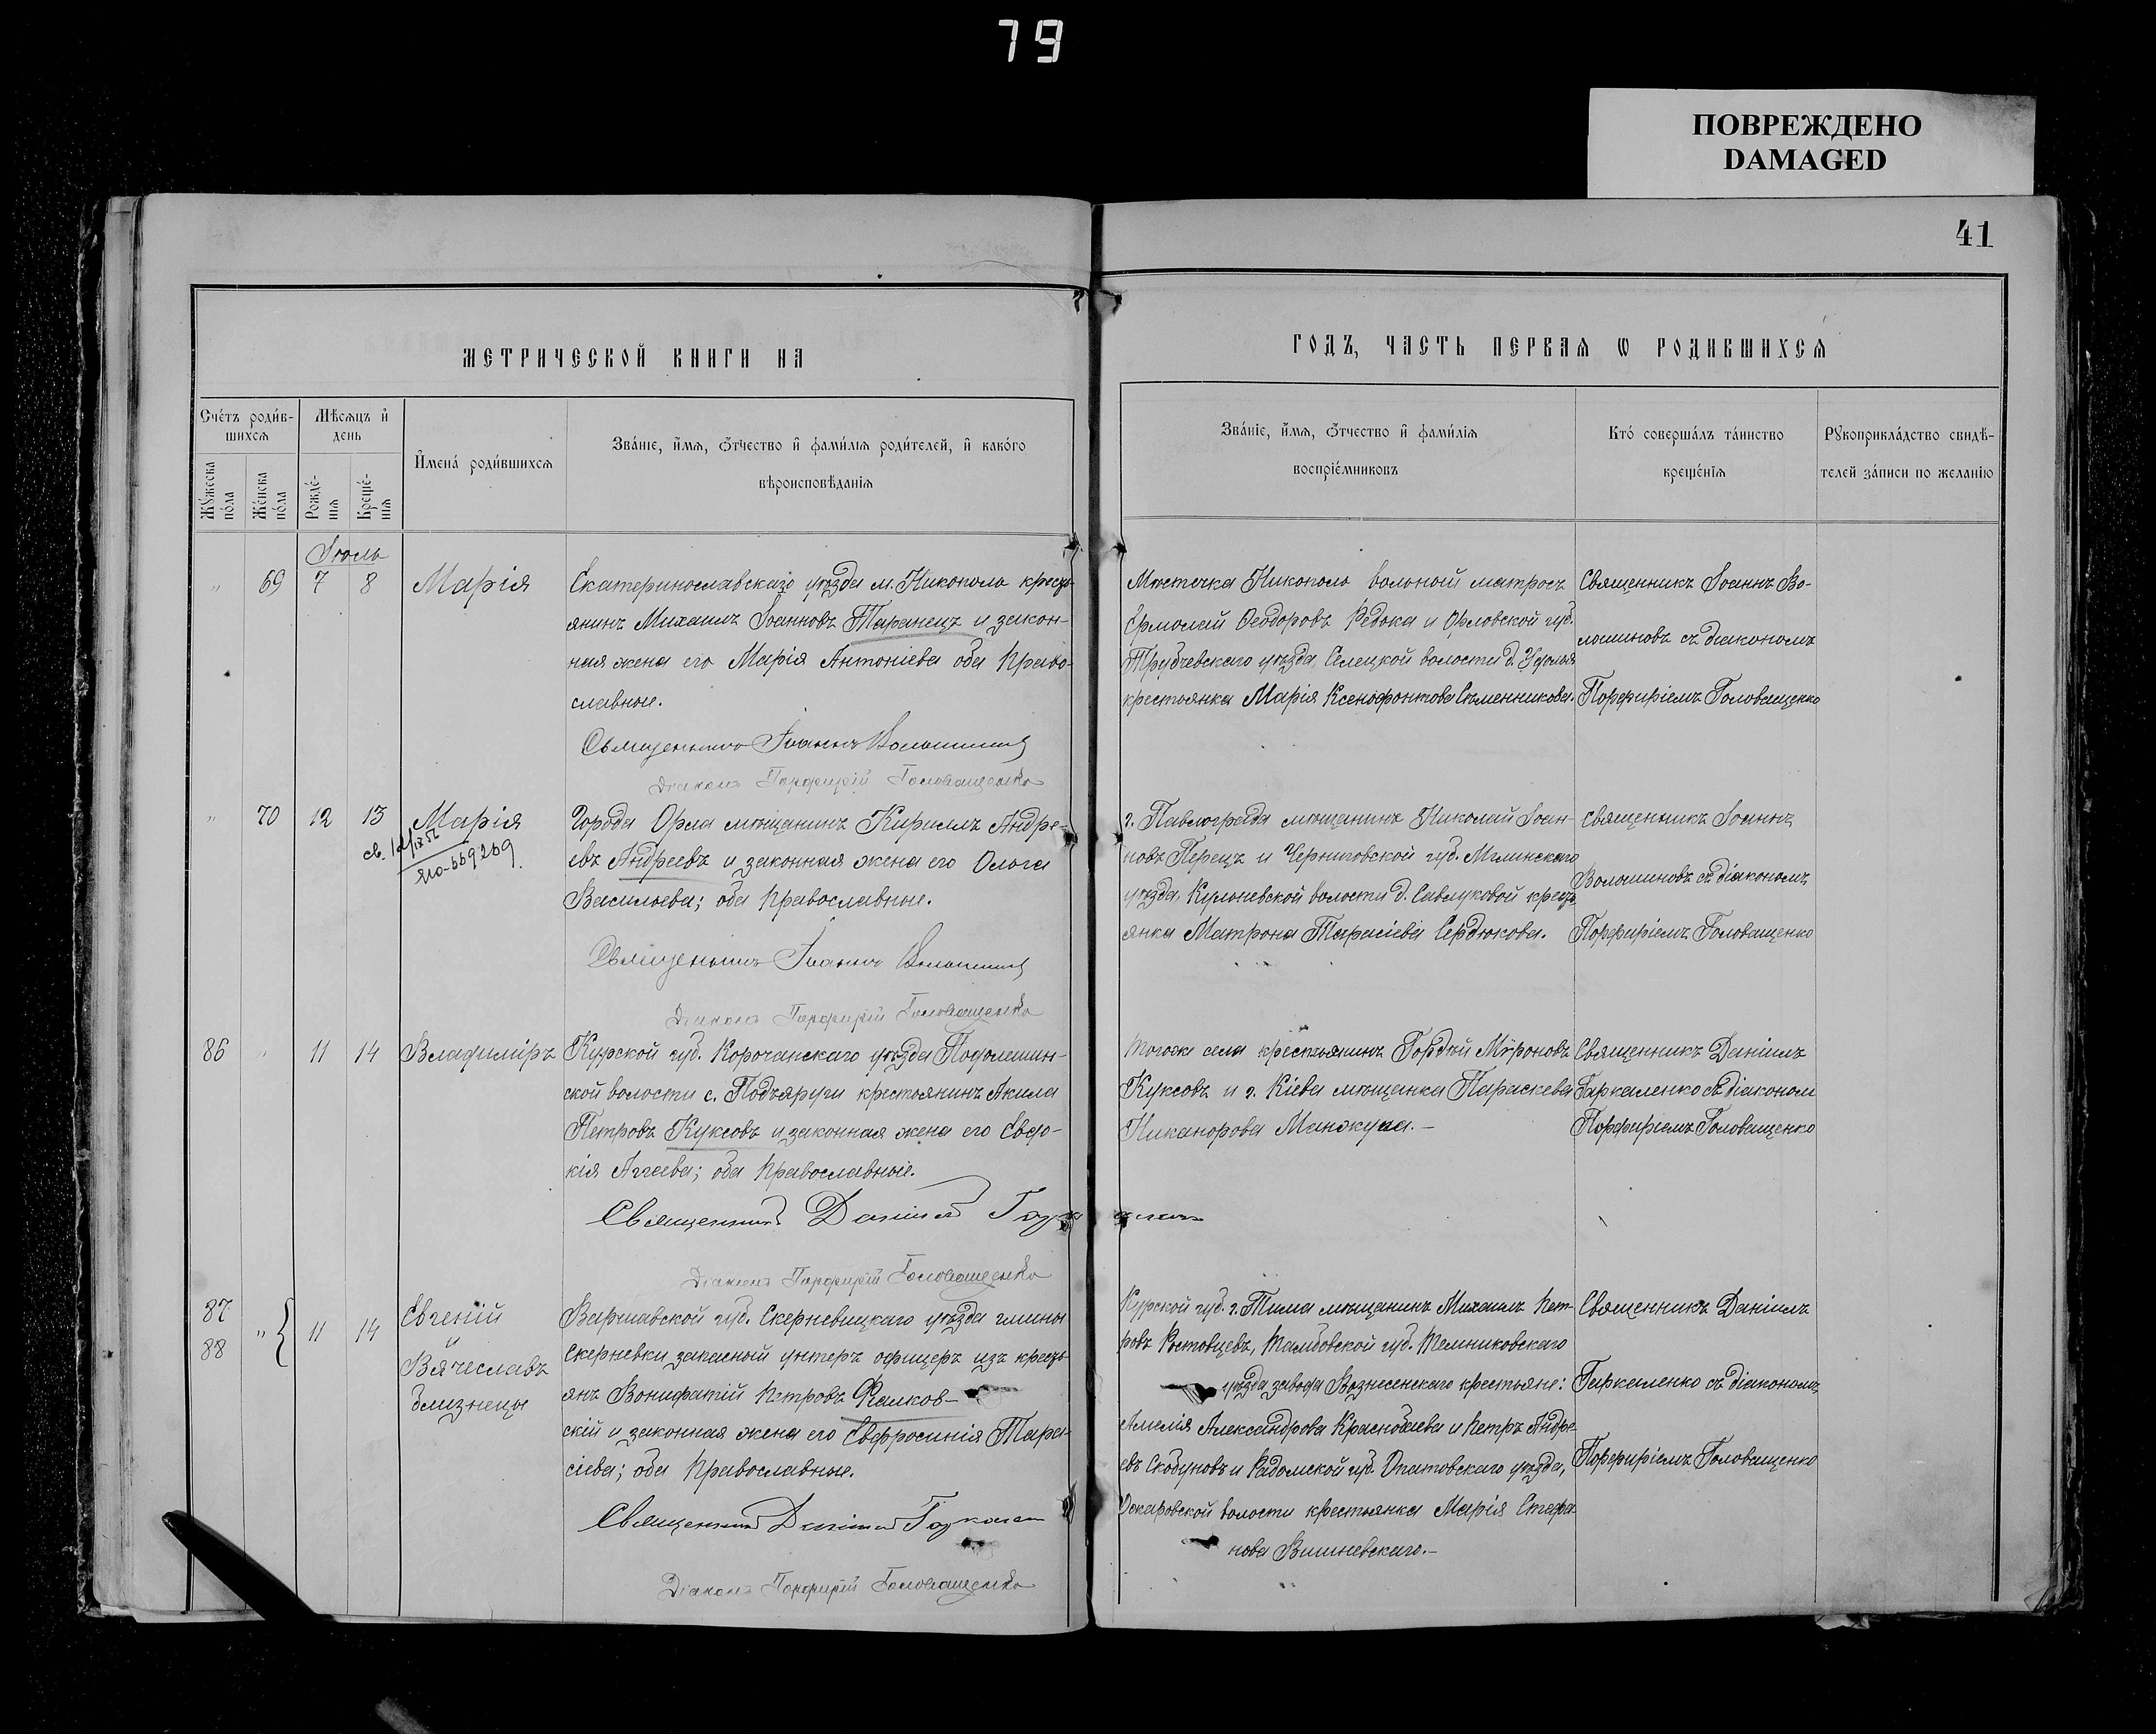 79
ПОВРЕЖДЕНО
DAMAGED
41
МЕТРИЧЕСКОЙ КНИГИ НА
ГОДЪ, ЧАСТЬ ПЕРВАЯ Ѡ РОДИВШИХСЯ
Счетъ родив-
шихся
Мужеска пола
Женска пола
Мѣсяцъ и
день
Рожде-
нія
Креще-
нія
Имена родившихся
Званіе, имя, отчество и фамилья родителей, и какого
вѣроисповѣданія
Званіе, имя, отчество и фамилія
воспріемниковъ
Кто совершалъ таинство
крещенія
Рукоприкладство свидѣ-
телей записи по желанію
Іюль
" 69 7 8 Марія
Екатеринославскаго уѣзда м. Никополь кресть-
янинъ Михаилъ Іоанновъ Таранецъ и закон-
ная жена его Марія Антоніева оба Право-
славные.
Священникъ Іоаннъ Волошиновъ
Діаконъ Порфирій Головащенко
Мѣстечка Никополь вольный матросъ
Ермолай Ѳеодоровъ Редька и Орловской губ.
Трубчевскаго уѣзда Селецкой волости д.
крестьянка Марія Ксенофонтова Сѣменникова.
Священникъ Іоаннъ Во-
лошиновъ съ діакономъ
Порфиріемъ Головащенко
" 70 12 13 Марія
св.
ЯЮ-559269.
Города Орла мѣщанинъ Кириллъ Андре-
евъ Андреевъ и законная жена его Ольга
Васильева; оба Православные.
Священникъ Іоаннъ Волошиновъ
Діаконъ Порфирій Головащенко
г. Павлограда мѣщанинъ Николай Іоан-
новъ Перецъ и Черниговской губ. Мглинскаго
уѣзда, Кульневской волости д. Савлуковой кресть-
янка Матрона Тарасіева Сердюкова.
Священникъ Іоаннъ
Волошиновъ съ діакономъ
Порфиріемъ Головащенко
86 " 11 14 Владиміръ
Курской губ. Корочанскаго уѣзда
ской волости с. Подъяруги крестьянинъ Акила
Петровъ Куксовъ и законная жена его Евдо-
кія Аггеева; оба Православные.
Священникъ Даніилъ Гаркаленко
Діаконъ Порфирій Головащенко
Тогоже села крестьянинъ Гордѣй Мѵроновъ
Куксовъ и г. Кіева мѣщанка Параскева
Никанорова Манжула.—
Священникъ Даніилъ
Гаркаленко съ діакономъ
Порфиріемъ Головащенко
87
88 " 11 14
Евгеній
и
Вячеславъ
близнецы
Варшавской губ. Скерневицкаго уѣзда гмины
Скерневки запасный унтеръ офицеръ изъ кресть-
янъ Вонифатій Петровъ Фалков-
скій и законная жена его Евфросинія Тара-
сіева; оба Православные.
Священникъ Даніилъ Гаркаленко
Діаконъ Порфирій Головащенко
Курской губ. г. Тима мѣщанинъ Михаилъ Пет-
ровъ Ростовцевъ, Тамбовской губ. Темниковскаго
уѣзда завода Вознесенскаго крестьяне:
Александрова Краснобаева и Петръ Андре-
евъ Скобуновъ и Радомской губ. Опатовскаго уѣзда,
волости крестьянка Марія Стефа-
нова Вишневскаго.—
Священникъ Даніилъ
Гаркаленко съ діакономъ
Порфиріемъ Головащенко